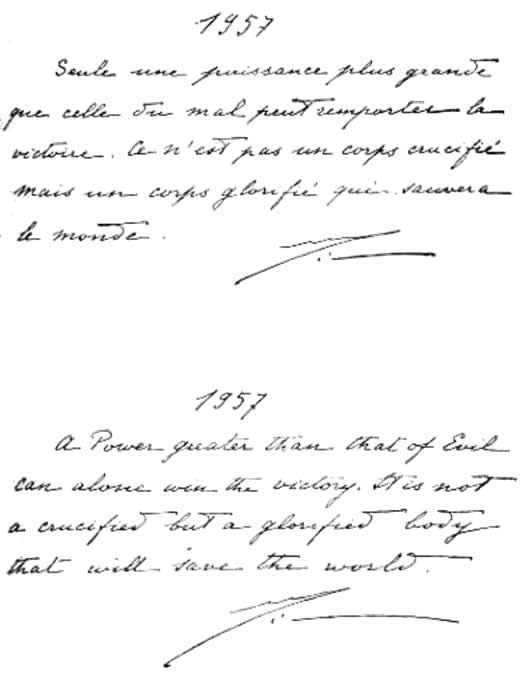 1957
Seule une puissance plus grande
que celle du mal peut remporter la
victoire. Ce n'est pas un corps crucifié
mais un corps glorifié qui sauvera
le monde.
1957
A Power greater than that of Evil
can alone win the victory. It is not
a crucified but a glorified body
that will save the world.